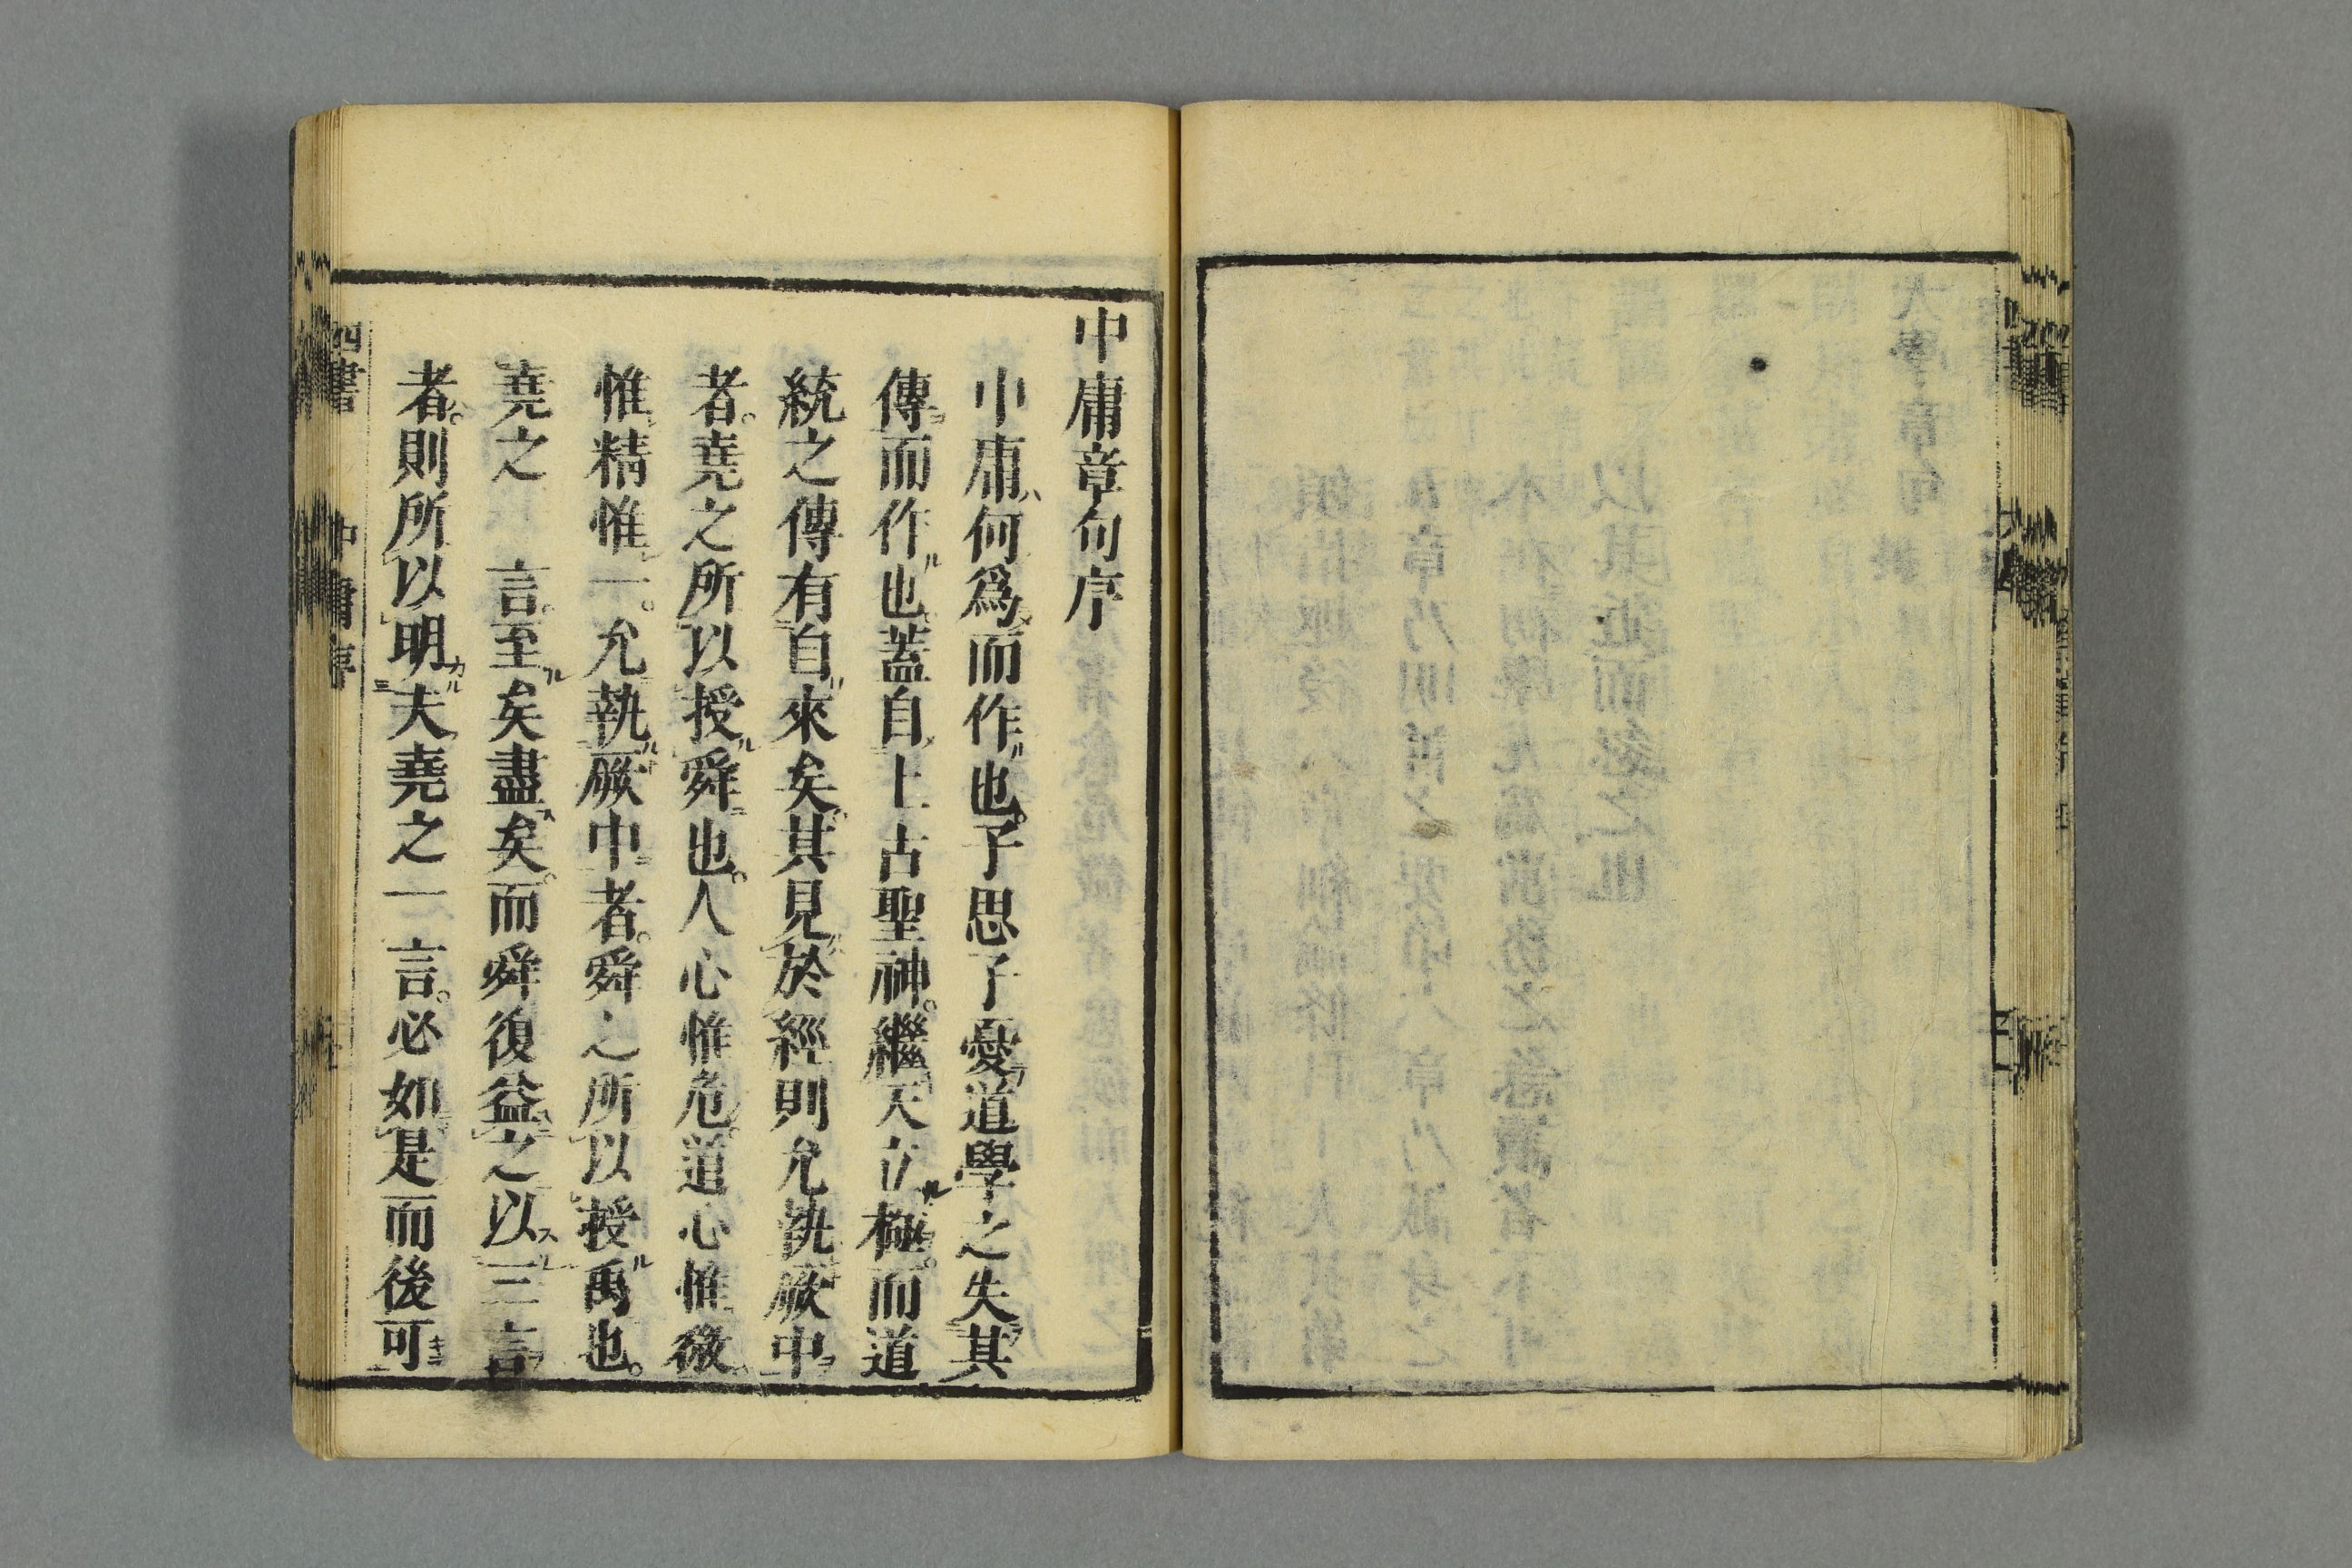 中庸章句序
中庸何爲而作也子思子憂道學之失其
傳而作也蓋自上古聖神繼天立極而道
統之傳有自來矣其見於經則允執厥中
者堯之所以授舜也人心惟危道心惟微
惟精惟一允執厥中者舜之所以授禹也
堯之 言至矣盡矣而舜復益之以三言
者則所以明夫堯之一言必如是而後可
四書 中庸序